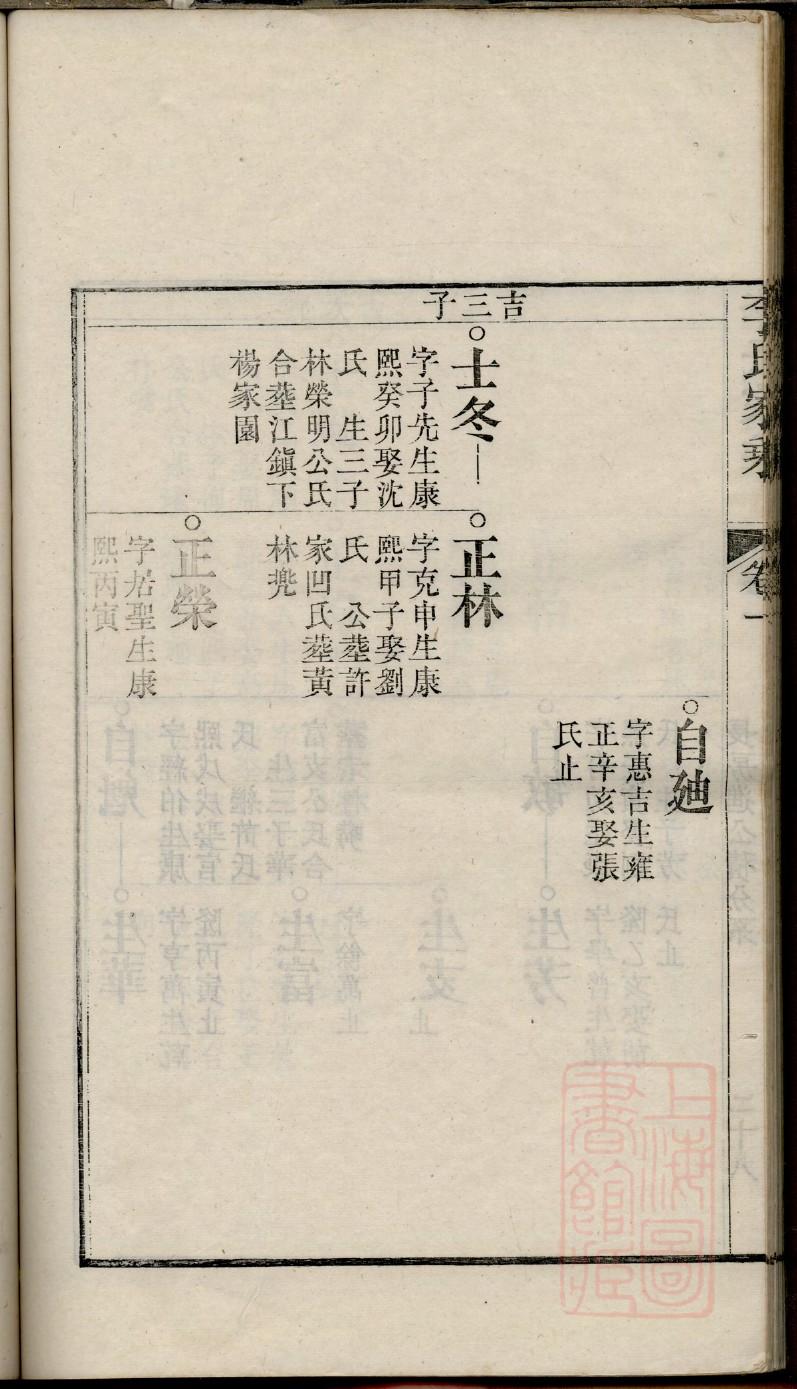 李氏家乘
卷一
自廸
字惠吉生雍
正辛亥娶張
氏止
吉三子
士冬
字子先生康
熙癸卯娶沈
氏 生三子
林榮明公氏
合塟江鎮下
楊家園
正林
字克申生康
熙甲子娶劉
氏 公塟許
家凹氏塟黃
林㙇
正榮
字居聖生康
熙丙寅
上海圖
書館藏